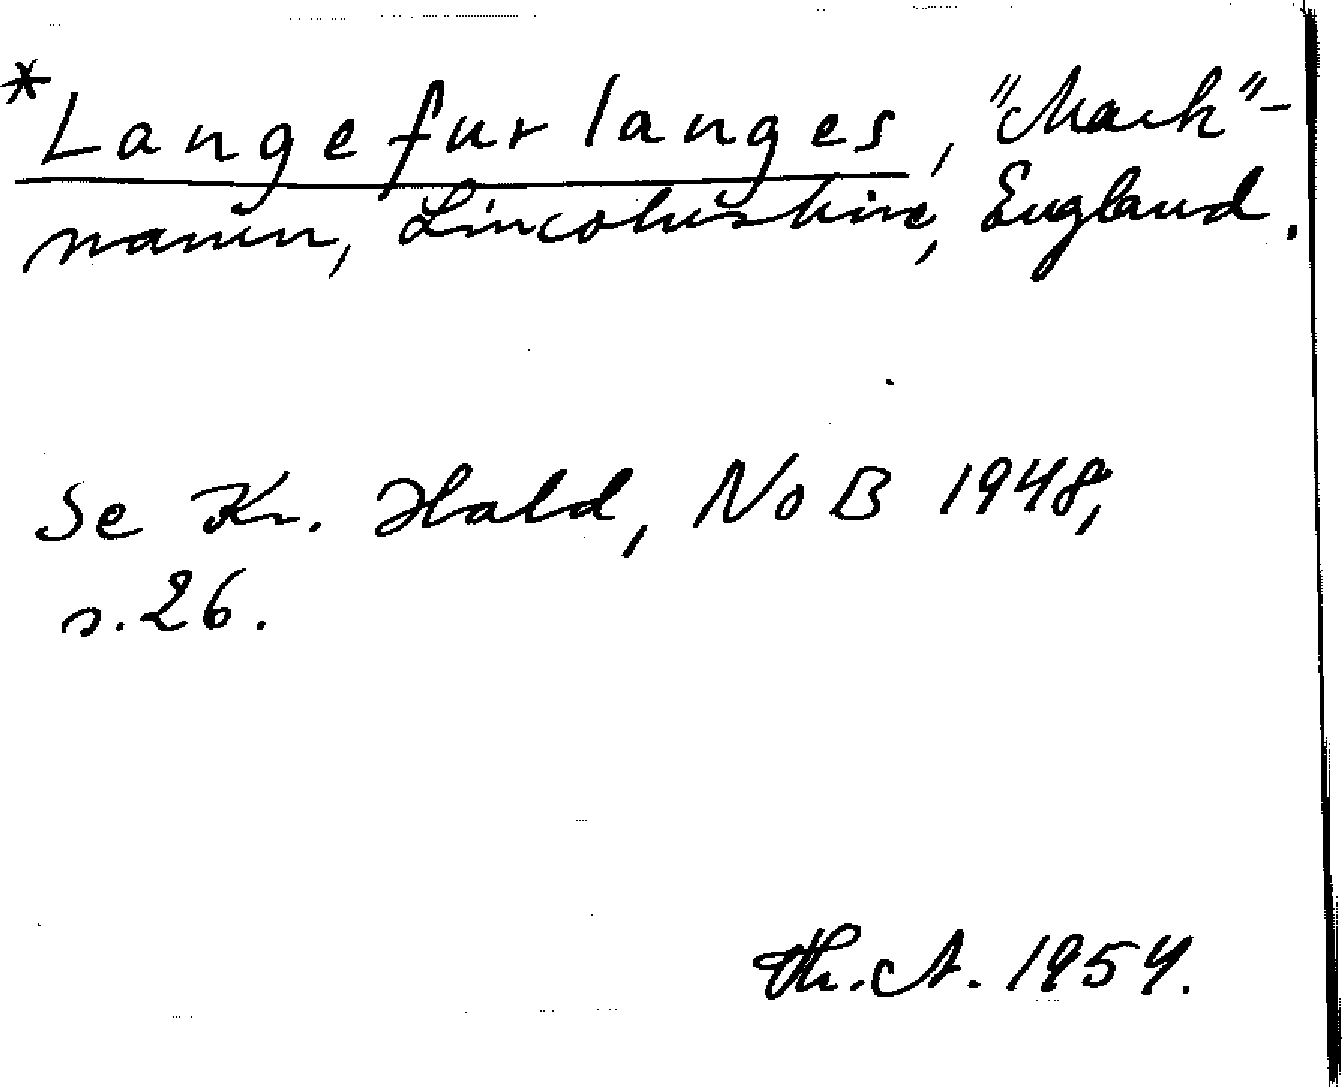 *Langefurlanges, "Mark"-
namn, Lincolnshire, England.
Se Kr. Hald, NoB 1948,
s. 26.
Th. A. 1954.